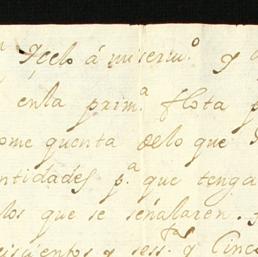 y çelo á mi seruº y
en la prim.ª flota
tome quenta de lo que
ntidades p.ª que tenga
los que se señalaren.
seiscientos y sess.ta y cinco